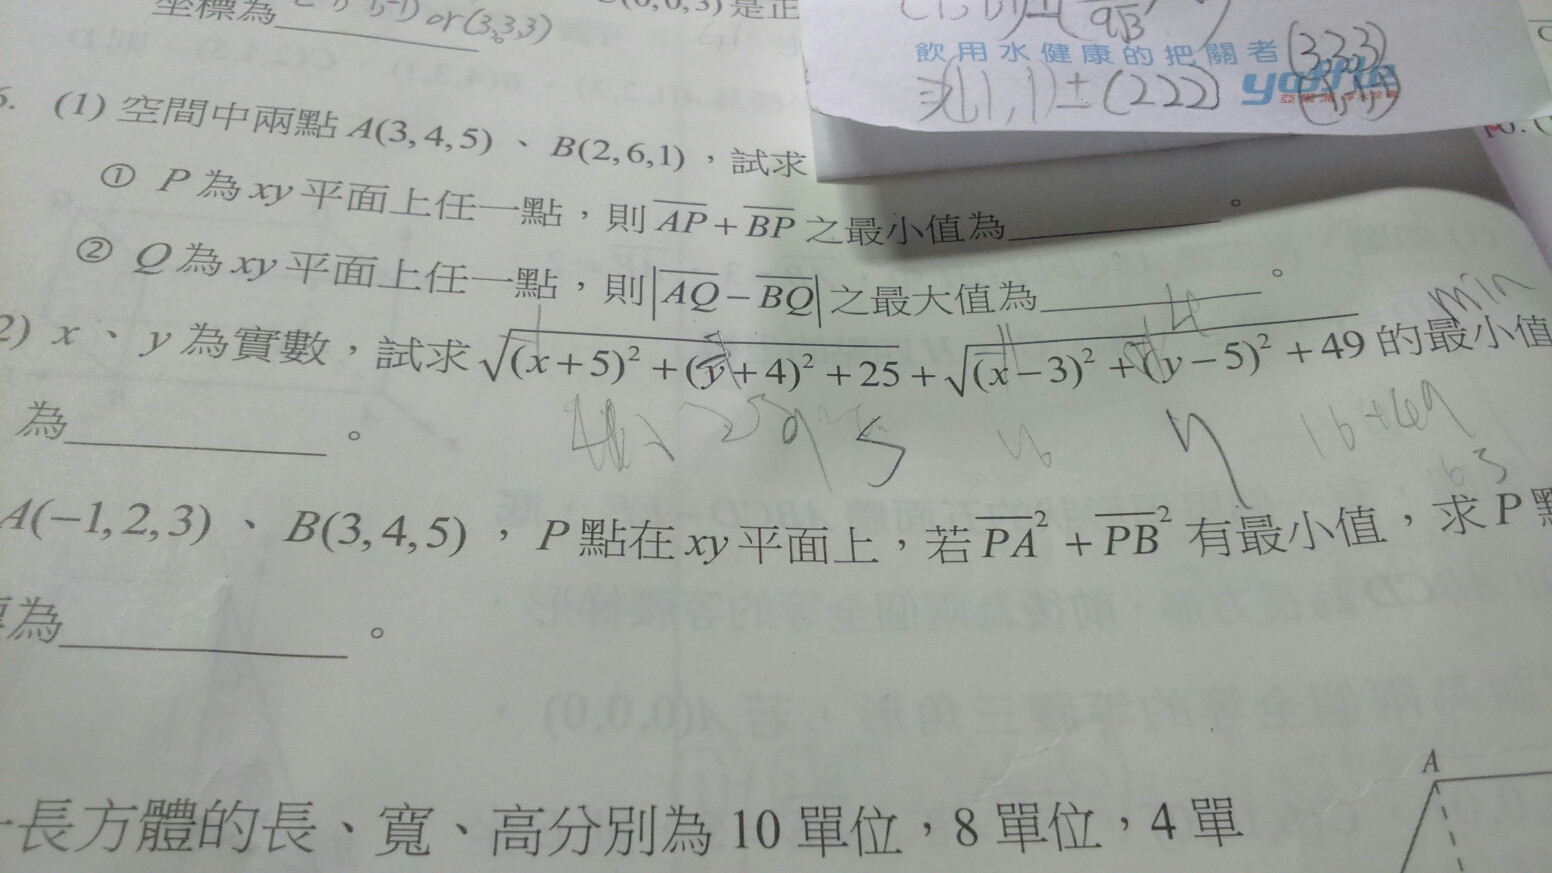 坐標為 or (3,3,3)
(0,0,3)是正
飲用水健康的把關者 (3,3,3)
(1,1,1)±(222) yoffle
6. (1) 空間中兩點 A(3,4,5)、B(2,6,1),試求
① P 為 xy 平面上任一點,則 AP + BP 之最小值為____________。
② Q 為 xy 平面上任一點,則 |AQ − BQ| 之最大值為____________。
2) x、y 為實數,試求 √((x+5)²+(y+4)²+25) + √((x−3)²+(y−5)²+49) 的最小值 min
為____________。
A(−1,2,3)、B(3,4,5),P 點在 xy 平面上,若 PA² + PB² 有最小值,求 P 點
為____________。
長方體的長、寬、高分別為 10 單位,8 單位,4 單
A